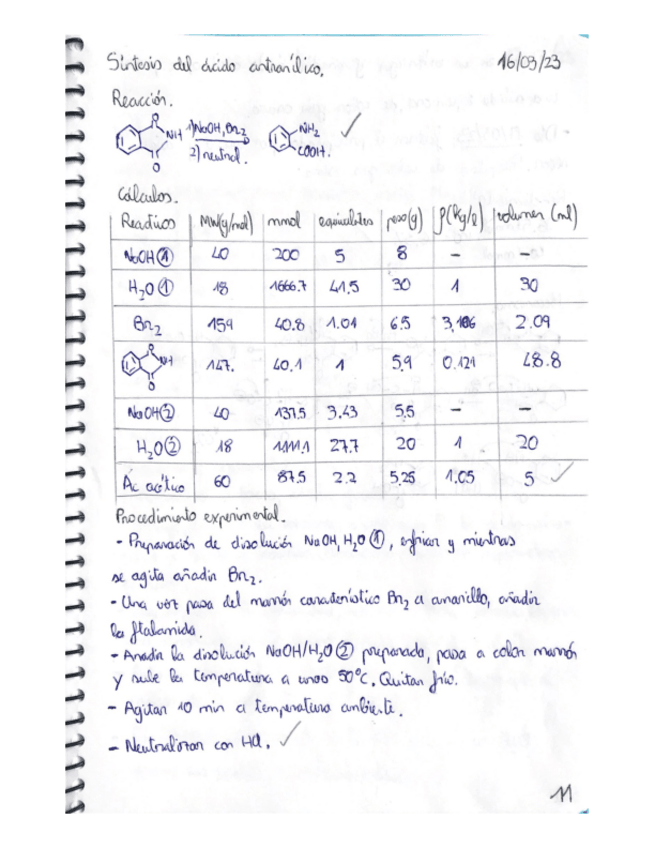 Síntesis del ácido antranílico. 16/03/23
Reacción.
O NH O 1) NaOH, Br2 2) neutral. NH2 COOH.
Cálculos.
Reactivos MW(g/mol) mmol equivalentes peso(g) ρ(kg/l) volumen (ml)
NaOH ① 40 200 5 8 - -
H2O ① 18 1666.7 41,5 30 1 30
Br2 159 40.8 1.01 6.5 2.09
O NH O 147. 40.1 1 5,9 0.121 48.8
NaOH ② 40 137.5 3.43 5,5 - -
H2O ② 18 1111,1 27.7 20 1 20
Ác acético 60 87.5 2.2 5,25 1.05 5
Procedimiento experimental.
- Preparación de disolución NaOH, H2O ①, enfriar y mientras
se agita añadir Br2.
- Una vez pasa del marrón característico Br2 a amarillo, añadir
la ftalamida.
- Anadir la disolución NaOH/H2O ② preparada, pasa a color marrón
y sube la temperatura a unos 50ºC. Quitar frío.
- Agitar 10 min a temperatura ambiente.
- Neutralizar con HCl.
11